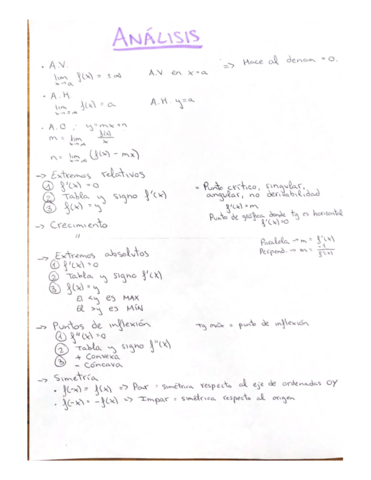 ANÁLISIS
· A.V.
lim f(x) = ±∞   A.V. en x=a   => Hace al denom = 0.
x→a
· A.H
lim f(x) = a   A.H. y=a
· A.O : y=mx+n
m = lim f(x)/x
n = lim (f(x) - mx)
→ Extremos relativos
① f'(x) = 0
② Tabla y signo f'(x)
③ f(x) = y
= Punto crítico, singular,
angular, no derivabilidad
f'(x) = m
Punto de gráfica donde tg es horizontal
f'(x)=0
→ Crecimiento
"
Paralela → m = f'(x)
Perpend. → m = -1/f'(x)
→ Extremos absolutos
① f'(x)=0
② Tabla y signo f'(x)
③ f(x) = y
El <y es MAX
El >y es MÍN
→ Puntos de inflexión   Tg máx = punto de inflexión
① f''(x) = 0
② Tabla y signo f''(x)
③ + Convexa
- Cóncava
→ Simetría
· f(-x) = f(x) => Par : simétrica respecto al eje de ordenadas OY
· f(-x) = -f(x) => Impar : simétrica respecto al origen